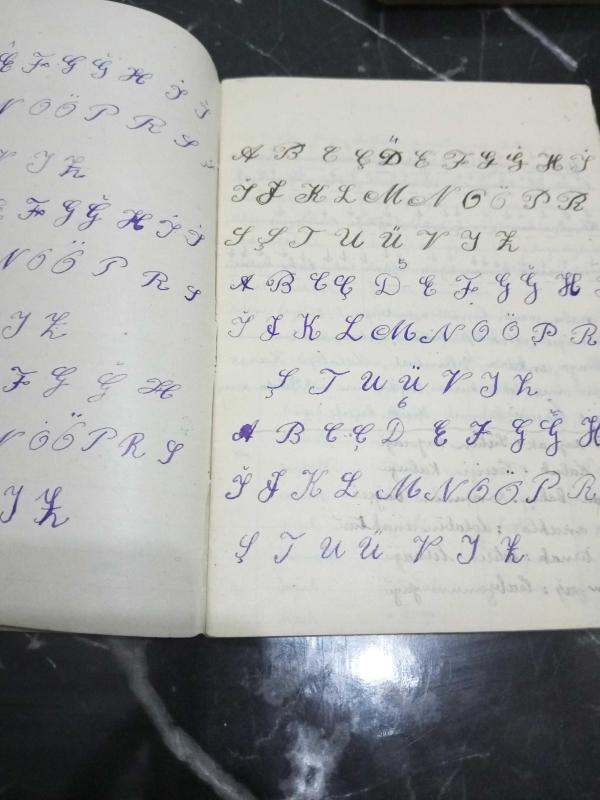 E F G Ğ H İ İ
N O Ö P R S
V Y Z
E F G Ğ H İ İ
N O Ö P R S
Y Z
F G Ğ H
N O Ö P R S
Y Z
A B C Ç D E F G Ğ H İ
İ J K L M N O Ö P R
S Ş T U Ü V Y Z
5
A B C Ç D E F G Ğ H
İ J K L M N O Ö P R
Ş T U Ü V Y Z
6
A B C Ç D E F G Ğ H
İ J K L M N O Ö P R
Ş T U Ü V Y Z